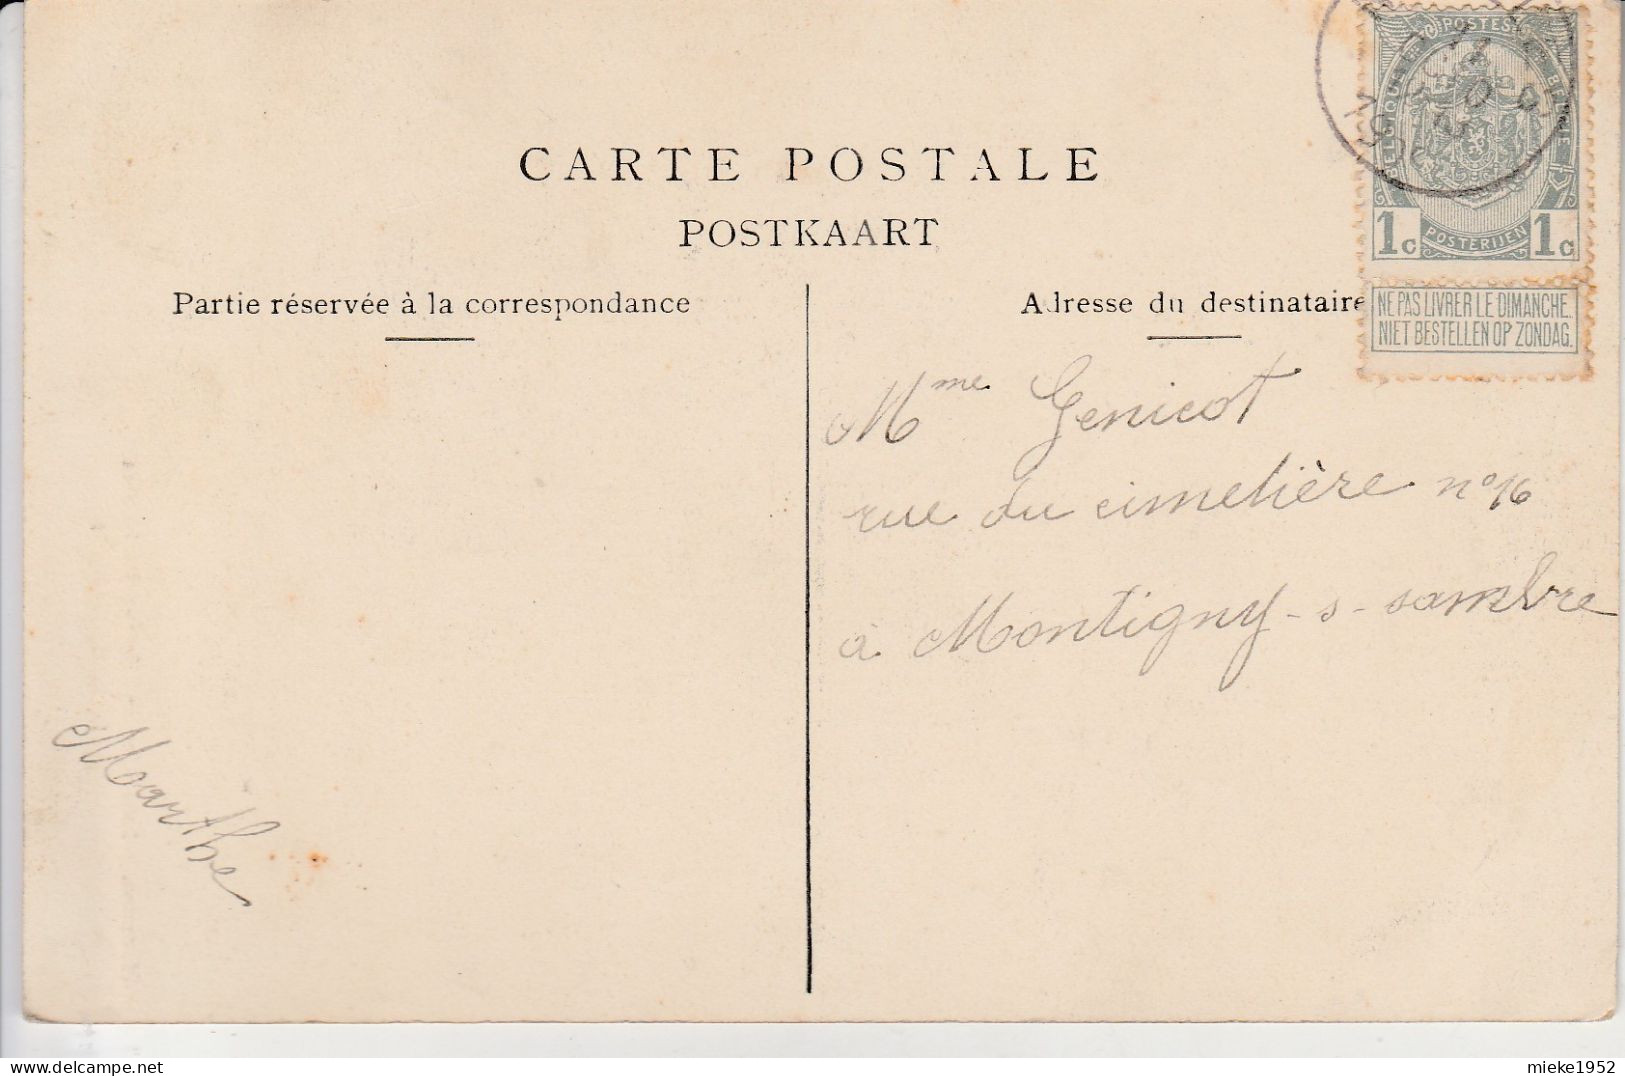 CARTE POSTALE
POSTKAART
Partie réservée à la correspondance
Adresse du destinataire
POSTES
BELGIQUE
BELGIË
1c POSTERIJEN 1c
NE PAS LIVRER LE DIMANCHE.
NIET BESTELLEN OP ZONDAG.
Mme Genicot
rue du cimetière n° 16
à Montigny-s-sambre
Marthe
mieke1952